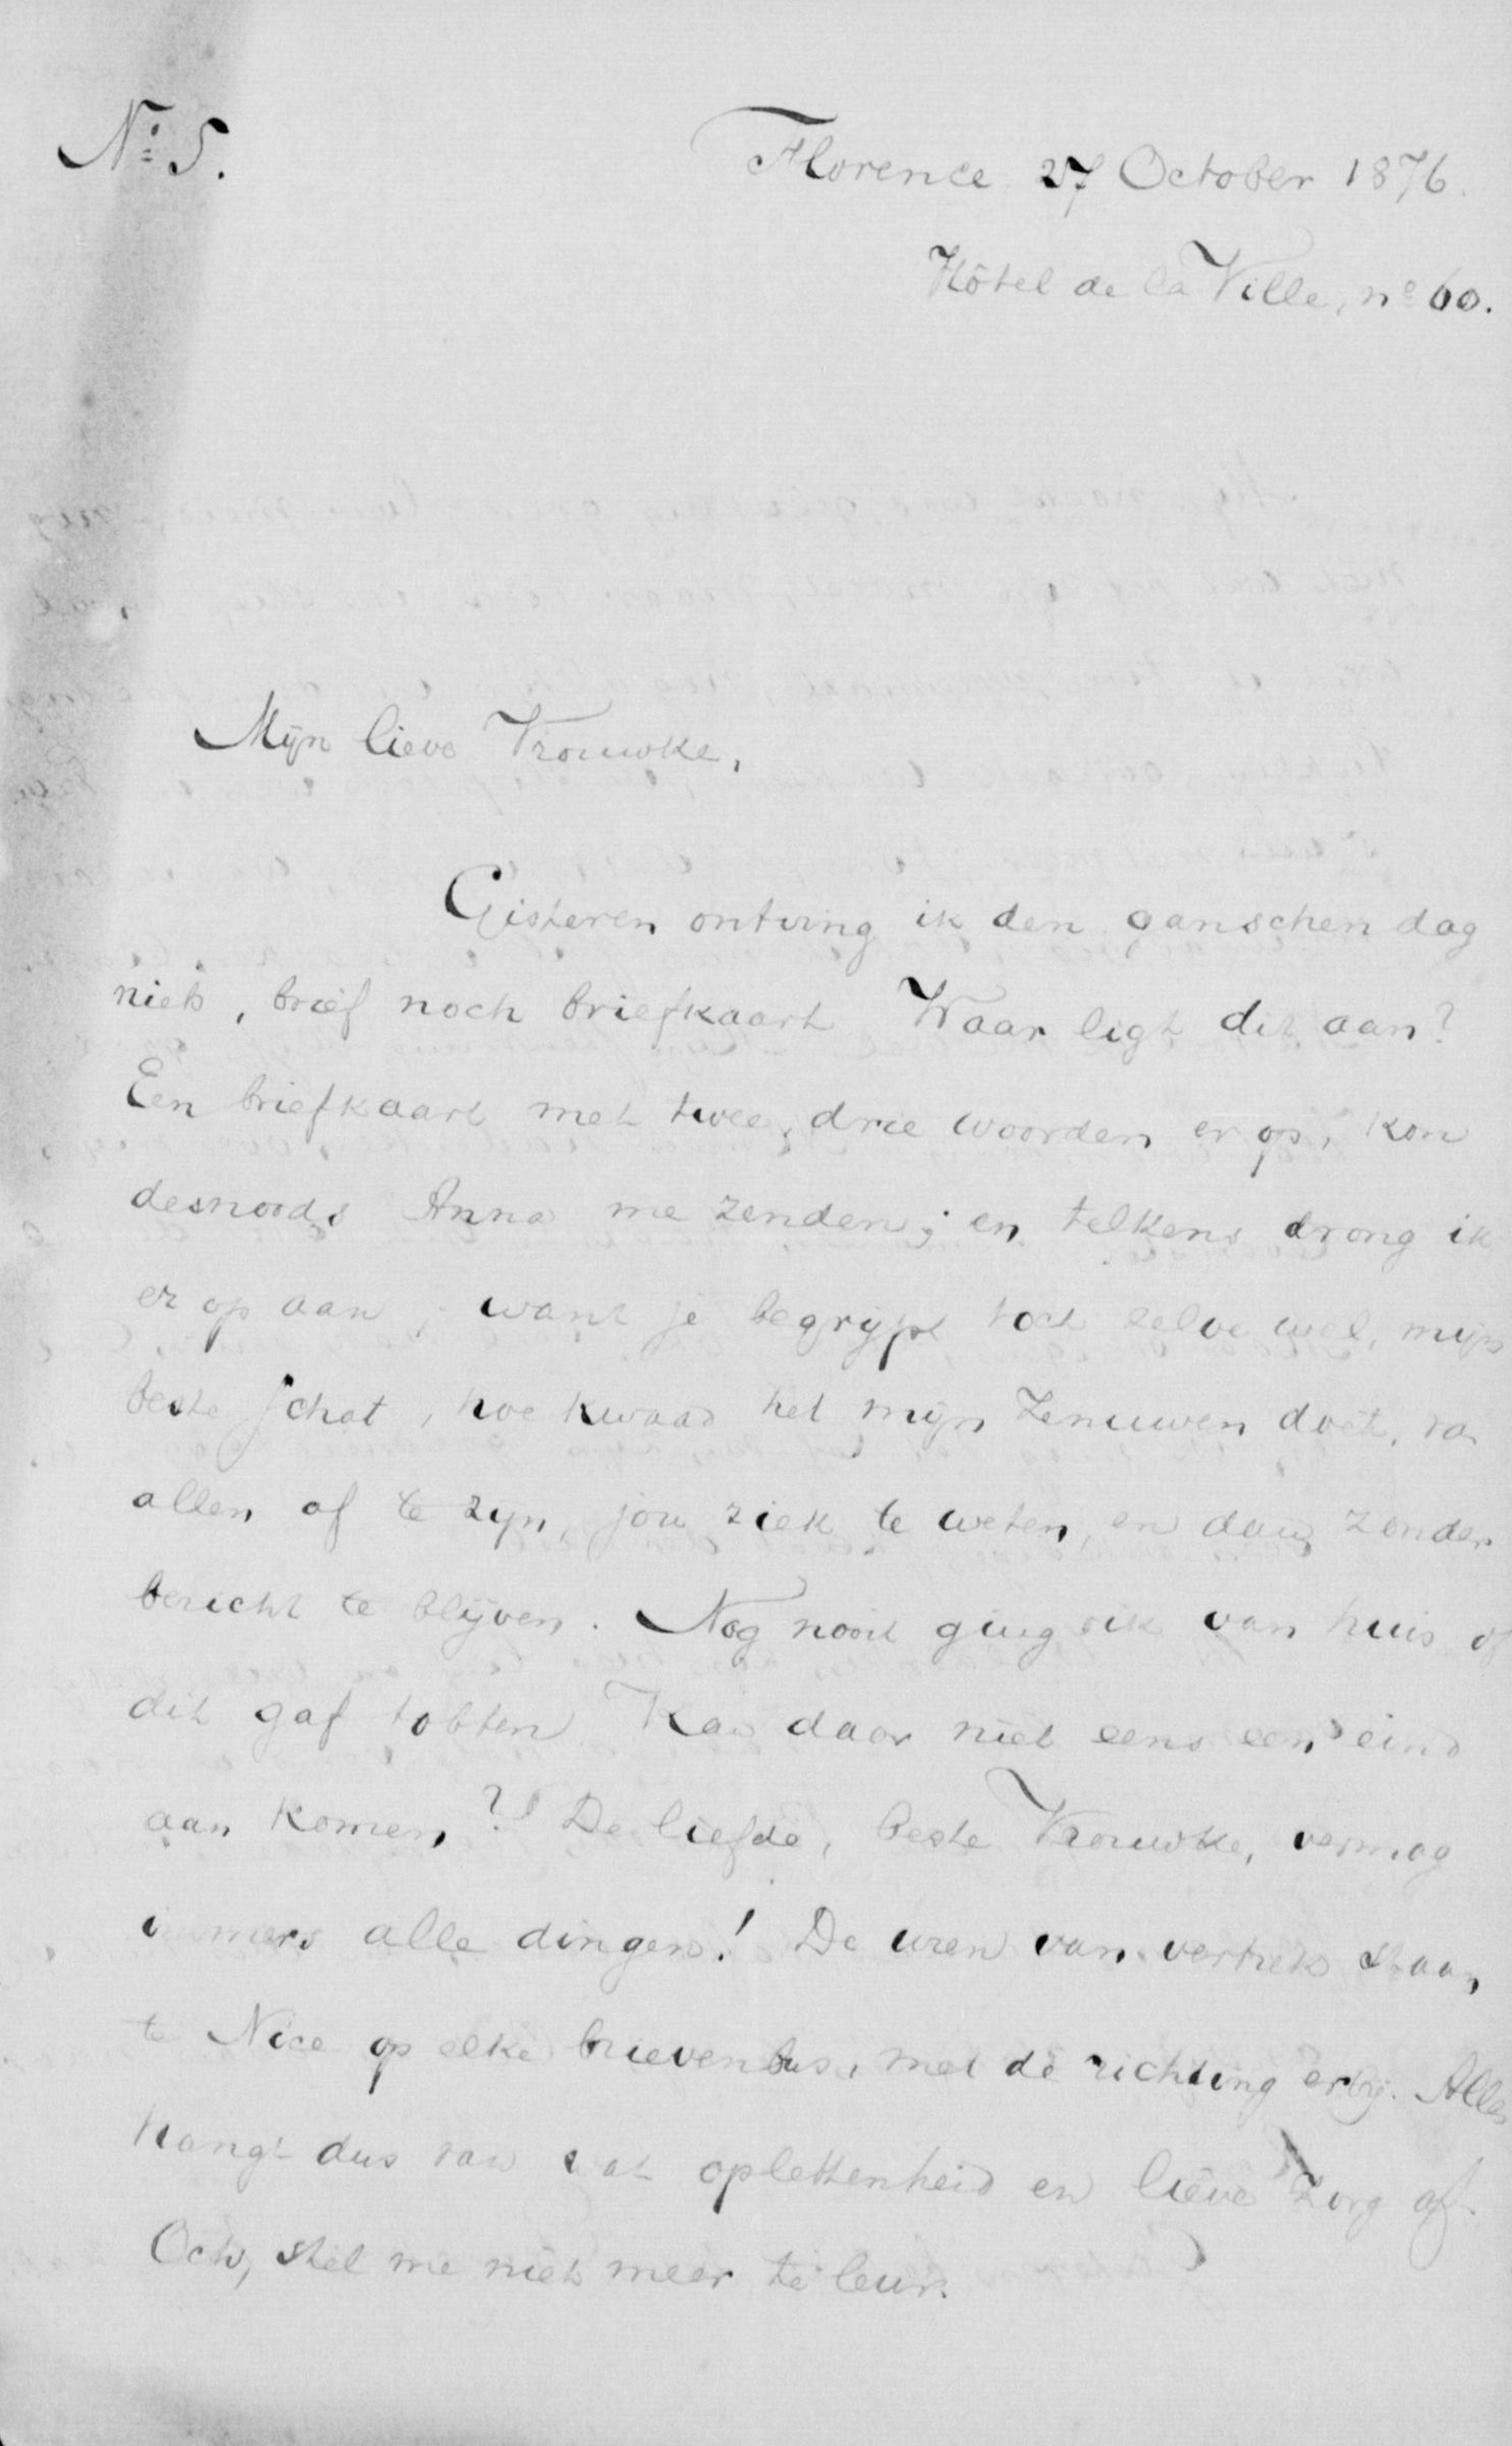 No 5.
Florence 27 October 1876.
Hôtel de la Ville, no 60.
Mijn lieve Vrouwke,
Gisteren ontving ik den ganschen dag
niets, brief noch briefkaart Waar ligt dit aan?
Een briefkaart met twee, drie woorden er op, kon
desnoods Anna me zenden; en telkens drong ik
er op aan, want je begrijpt toch zelve wel, mijn
beste schat, hoe kwaad het mijn zenuwen doet, van
allen af te zijn, jou ziek te weten, en dan zonder
bericht te blijven. Nog nooit ging ik van huis of
dit gaf tobben Kan daar niet eens een eind
aan komen? De liefde, beste Vrouwke, vermag
immers alle dingen! De uren van vertrek staan
te Nice op elke brievenbus, met de richting erbij. Alles
hangt dus van wat oplettenheid en lieve zorg af.
Och, stel me niet meer te leur.